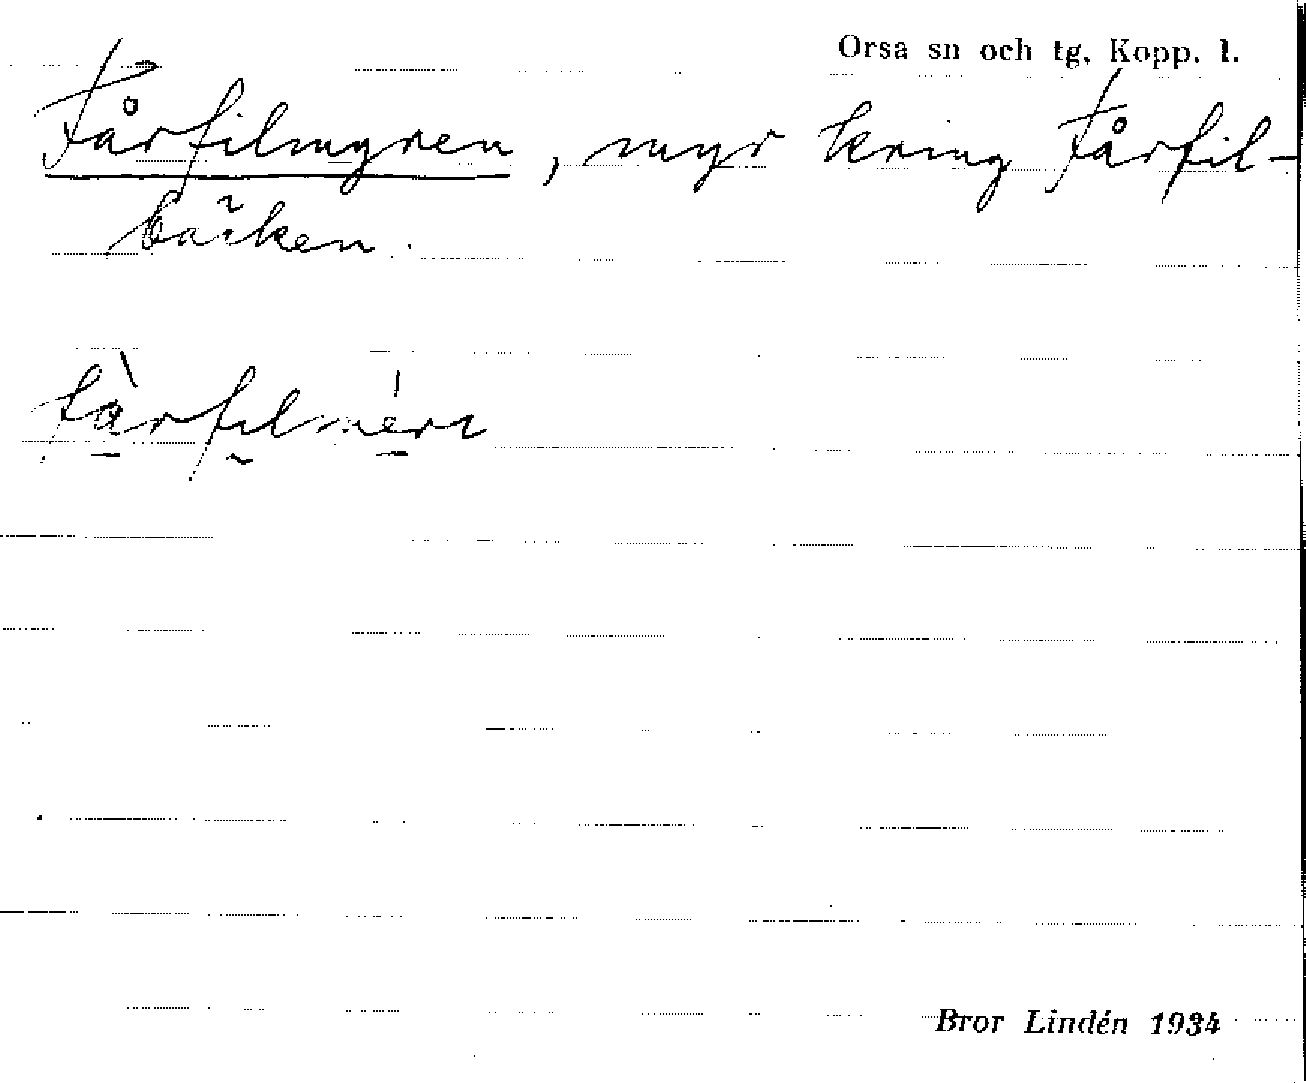 Orsa sn och tg. Kopp. l.
Fårfilmyren, myr kring Fårfil-
bäcken.
fàrfilmèrı
Bror Lindén 1934